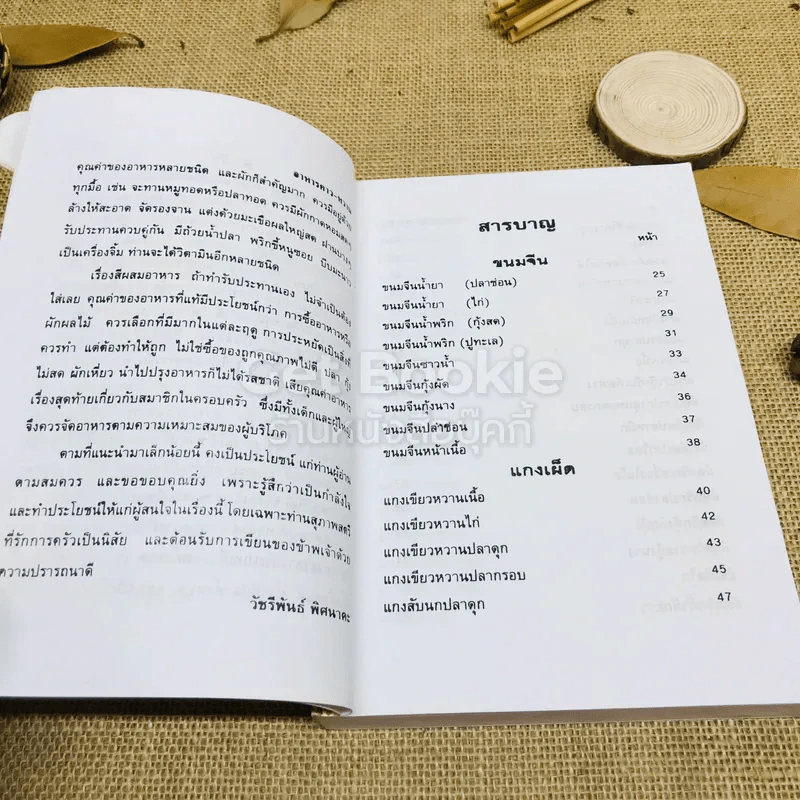 อาหารคาว-หวาน
คุณค่าของอาหารหลายชนิด และผักก็สำคัญมาก ควรมีอยู่ด้วย
ทุกมื้อ เช่น จะทานหมูทอดหรือปลาทอด ควรมีผักกาดหอมสดๆ
ล้างให้สะอาด จัดรองจาน แต่งด้วยมะเขือผลใหญ่สด ฝานบางๆ
รับประทานควบคู่กัน มีถ้วยน้ำปลา พริกขี้หนูซอย บีบมะนาว
เป็นเครื่องจิ้ม ท่านจะได้วิตามินอีกหลายชนิด
เรื่องสีผสมอาหาร ถ้าทำรับประทานเอง ไม่จำเป็นต้อง
ใส่เลย คุณค่าของอาหารที่แท้มีประโยชน์กว่า การซื้ออาหารหรือ
ผักผลไม้ ควรเลือกที่มีมากในแต่ละฤดู การประหยัดเป็นสิ่งที่
ควรทำ แต่ต้องทำให้ถูก ไม่ใช่ซื้อของถูกคุณภาพไม่ดี ปลา กุ้ง
ไม่สด ผักเหี่ยว นำไปปรุงอาหารก็ไม่ได้รสชาติ เสียคุณค่าอาหาร
เรื่องสุดท้ายเกี่ยวกับสมาชิกในครอบครัว ซึ่งมีทั้งเด็กและผู้ใหญ่
จึงควรจัดอาหารตามความเหมาะสมของผู้บริโภค
ตามที่แนะนำมาเล็กน้อยนี้ คงเป็นประโยชน์ แก่ท่านผู้อ่าน
ตามสมควร และขอขอบคุณยิ่ง เพราะรู้สึกว่าเป็นกำลังใจ
และทำประโยชน์ให้แก่ผู้สนใจในเรื่องนี้ โดยเฉพาะท่านสุภาพสตรี
ที่รักการครัวเป็นนิสัย และต้อนรับการเขียนของข้าพเจ้าด้วย
ความปรารถนาดี
วัชรีพันธ์ พิศนาคะ
สารบาญ
หน้า
ขนมจีน
ขนมจีนน้ำยา (ปลาช่อน) 25
ขนมจีนน้ำยา (ไก่) 27
ขนมจีนน้ำพริก (กุ้งสด) 29
ขนมจีนน้ำพริก (ปูทะเล) 31
ขนมจีนซาวน้ำ 33
ขนมจีนกุ้งผัด 34
ขนมจีนกุ้งนาง 36
ขนมจีนปลาช่อน 37
ขนมจีนหน้าเนื้อ 38
แกงเผ็ด
แกงเขียวหวานเนื้อ 40
แกงเขียวหวานไก่ 42
แกงเขียวหวานปลาดุก 43
แกงเขียวหวานปลากรอบ 45
แกงสับนกปลาดุก 47
Get Bookie
ร้านหนังสือบุ๊คกี้